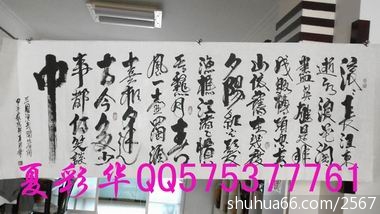 滚滚长江东
逝水浪花淘
尽英雄是非
成败转头空青
山依旧在几度
夕阳红白发
渔樵江渚惯
看秋月春
风一壶浊酒
喜相逢
古今多少
事都付笑谈
中
夏彩华QQ575377761
shuhua66.com/2567